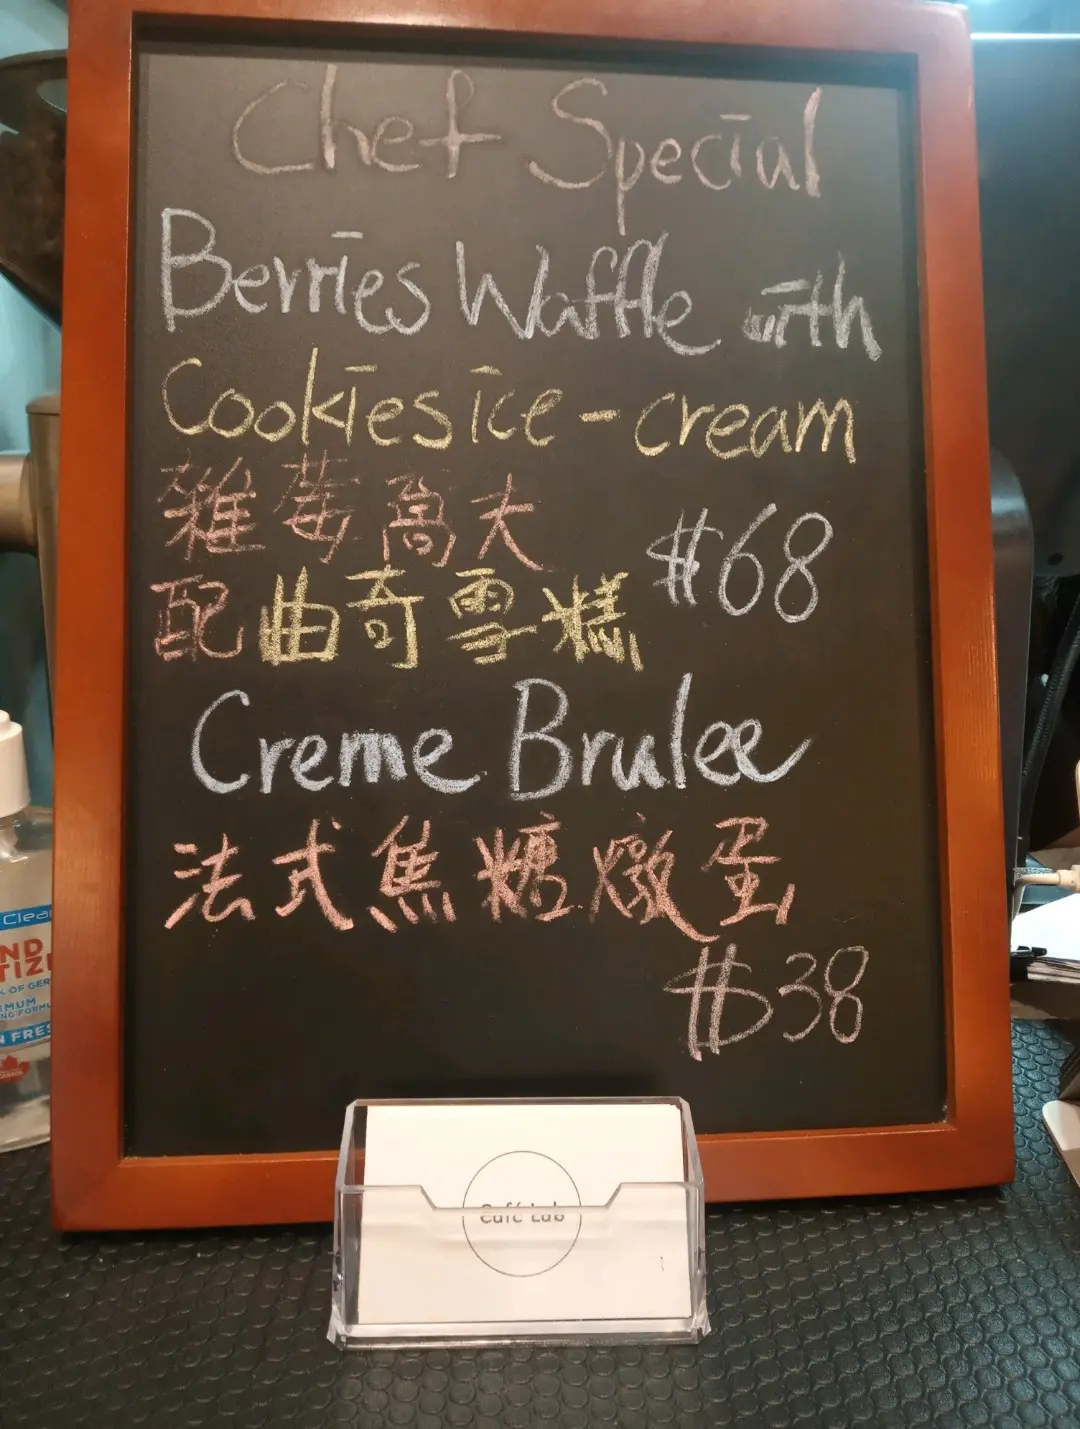 Chef Special
Berries Waffle with
Cookies ice-cream
雜莓窩夫
$68
配曲奇雪糕
Creme Brulee
法式焦糖燉蛋
$38
Café Lab
Clean
ND
TIZ
% OF GER
IMUM
NG FORMU
N FRES